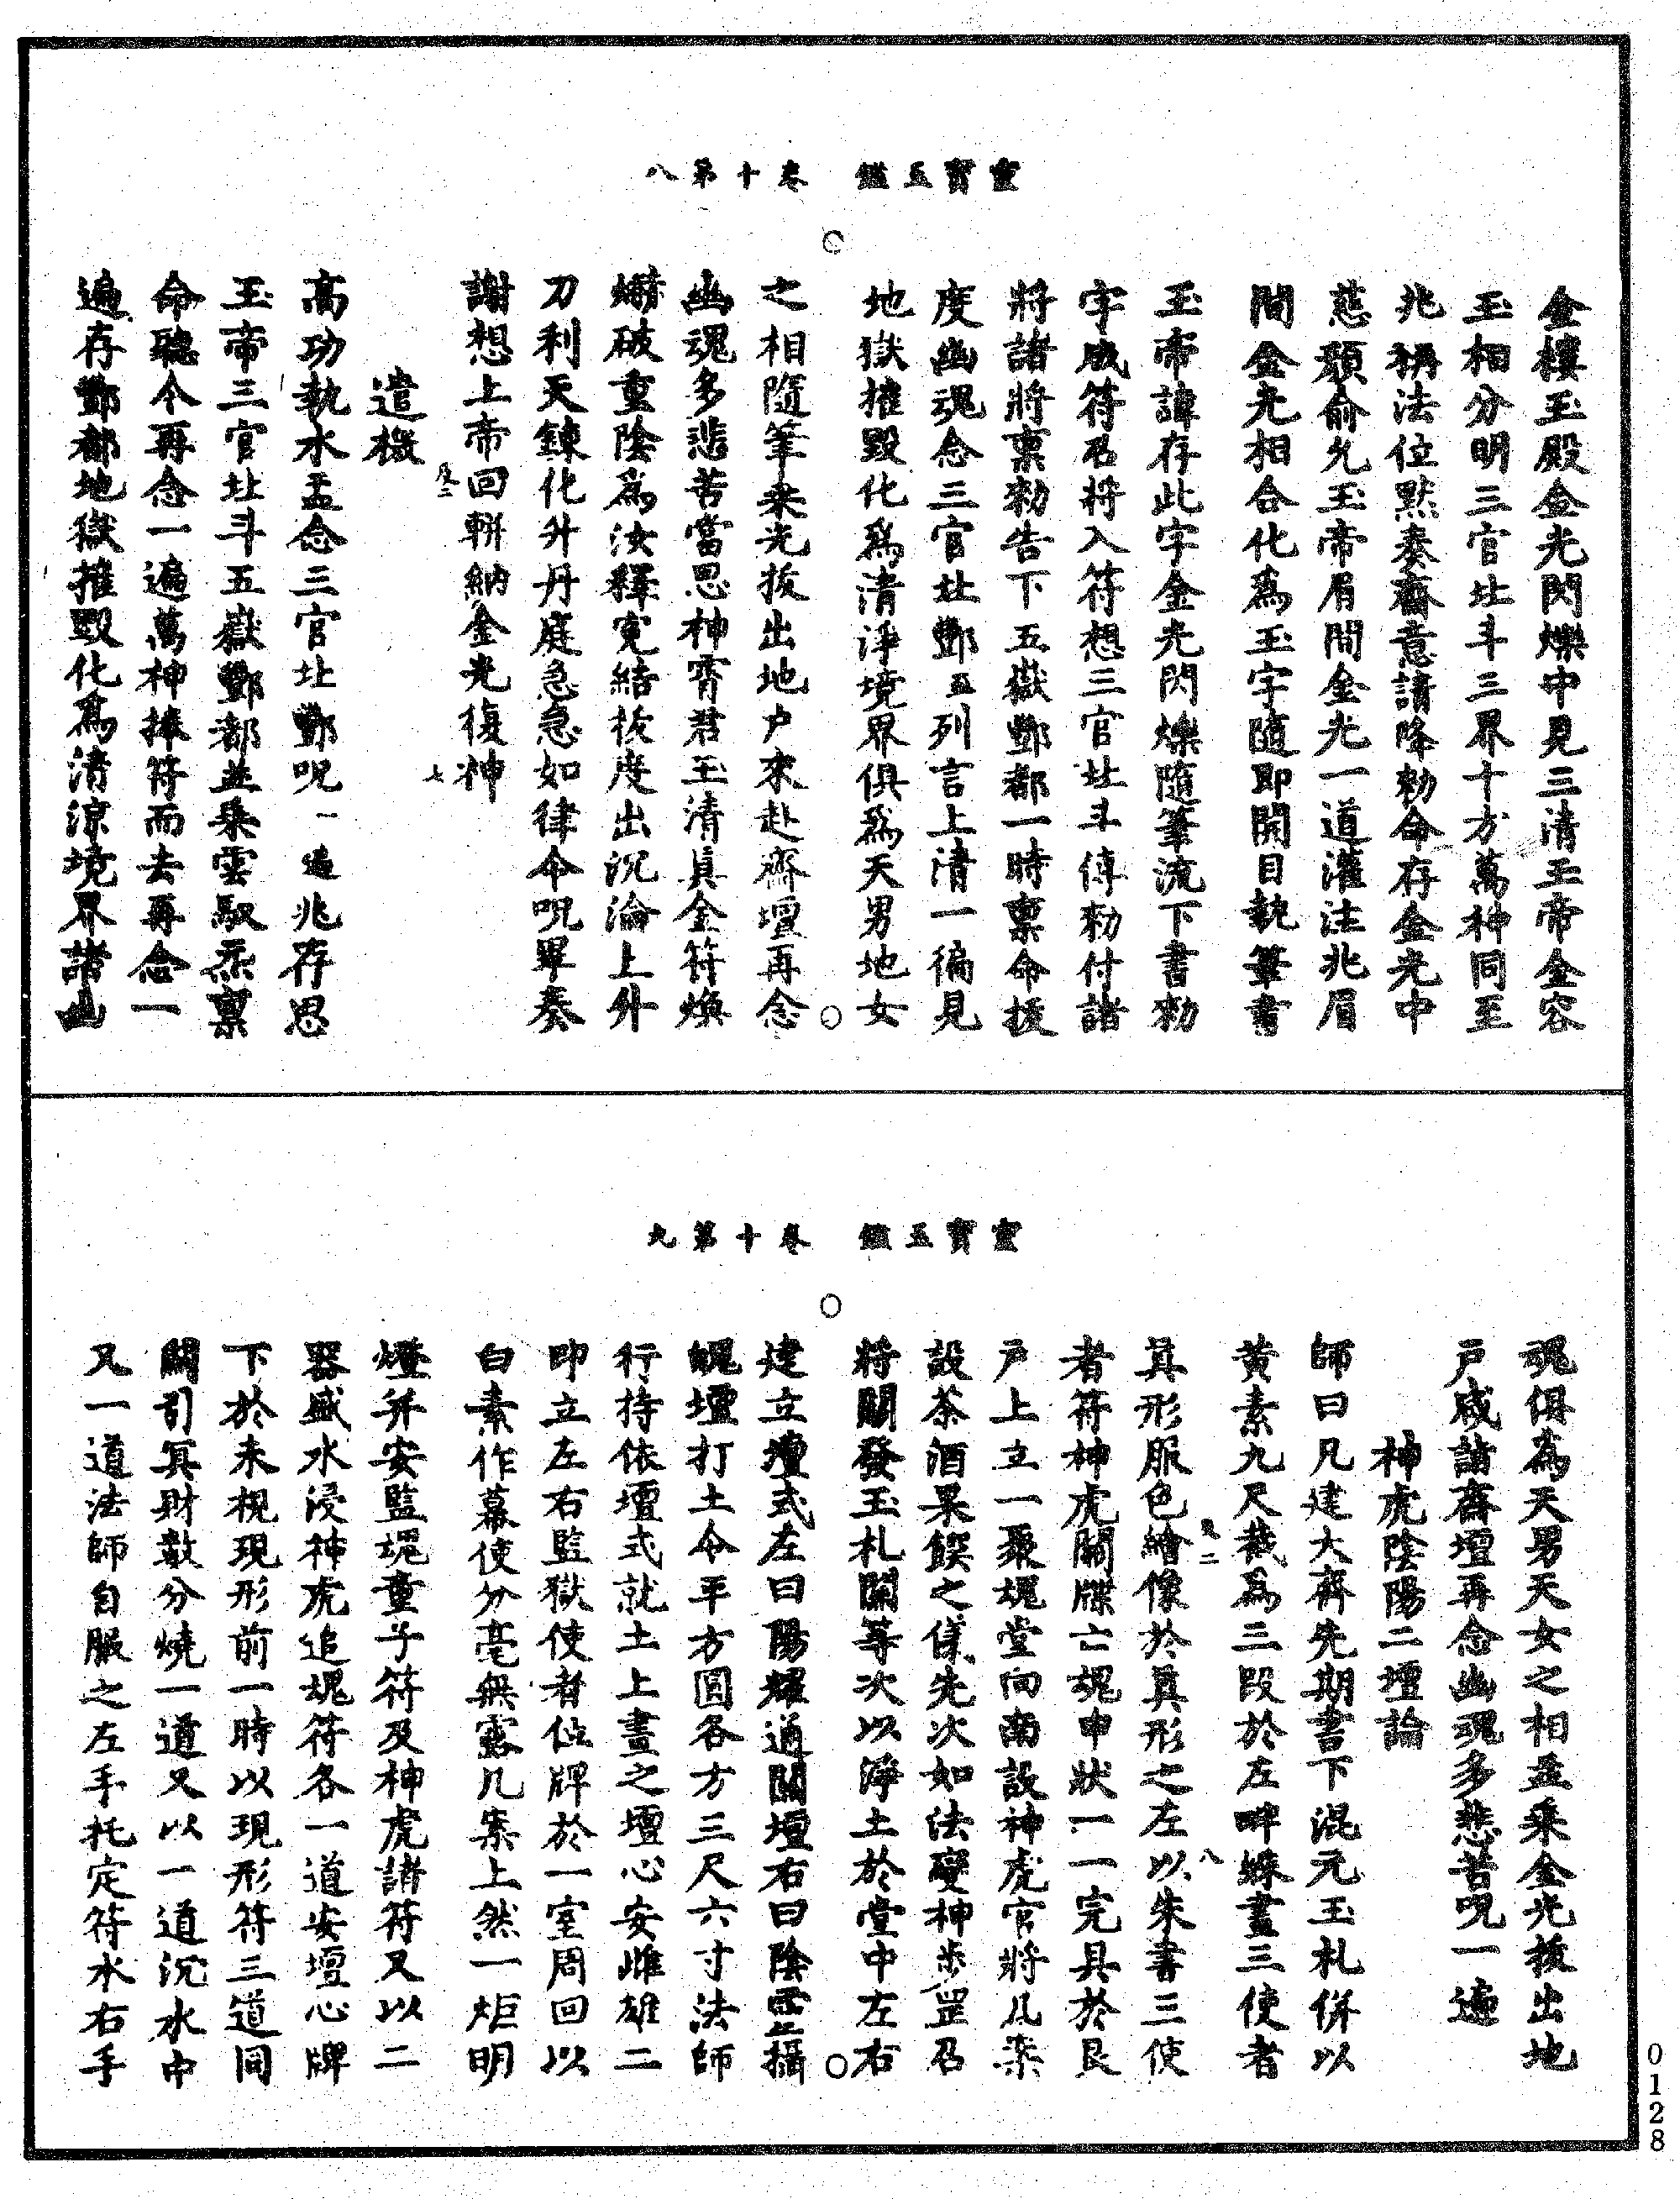 靈寶玉鑑 卷十第八
金樓玉殿金光閃爍中見三清玉帝金容
玉相分明三官北斗三界十方萬神同至
兆稱法位默奏齋意請降勑命存金光中
慈顔俞允玉帝眉間金光一道灌注兆眉
間金光相合化爲玉字隨即開目執筆書
玉帝諱存此字金光閃爍隨筆流下書勑
字成符召將入符想三官北斗傳勑付諸
將諸將禀勑告下五嶽酆都一時禀命拔
度幽魂念三官北酆五列言上清一徧見
地獄摧毀化爲清淨境界俱爲天男地女
之相隨筆乘光拔出地户來赴齋壇再念
幽魂多悲苦當思神霄君玉清真金符煥
爀破重陰爲汝釋寃結拔度出沉淪上升
刀利天鍊化升丹庭急急如律令呪畢奏
謝想上帝回軿納金光復神
遣機
高功執水盂念三官北酆呪一遍兆存思
玉帝三官北斗五嶽酆都並乗雲馭炁禀
命聽令再念一遍萬神捧符而去再念一
遍存酆都地獄摧毀化爲清涼境界諸幽
靈寶玉鑑 卷十第九
魂俱為天男天女之相並乗金光拔出地
戸咸詣齋壇再念幽魂多悲苦呪一遍
神虎陰陽二壇論
師曰凡建大齋先期書下混元玉札併以
黄素九尺裁爲三段於左畔嫲畫三使者
真形服色繪像於真形之左以朱書三使
者符神虎關牒亡魂申狀一一完具於艮
戸上立一聚魂堂向南設神虎官將几案
設茶酒果饌之儀先次如法變神步罡召
將關發玉札關等次以淨土於堂中左右
建立壇式左曰陽耀通關壇右曰陰靈攝
魄壇打土令平方圓各方三尺六寸法師
行持依壇式就土上畫之壇心安雌雄二
印立左右監獄使者位牌於一室周回以
白素作幕使分毫無露几案上然一炬明
燈并安監魂童子符及神虎諸符又以二
器盛水浸神虎追魂符各一道安壇心牌
下於未梘現形前一時以現形符三道同
關引冥財數分燒一道又以一道沉水中
又一道法師自服之左手托定符水右手
0128